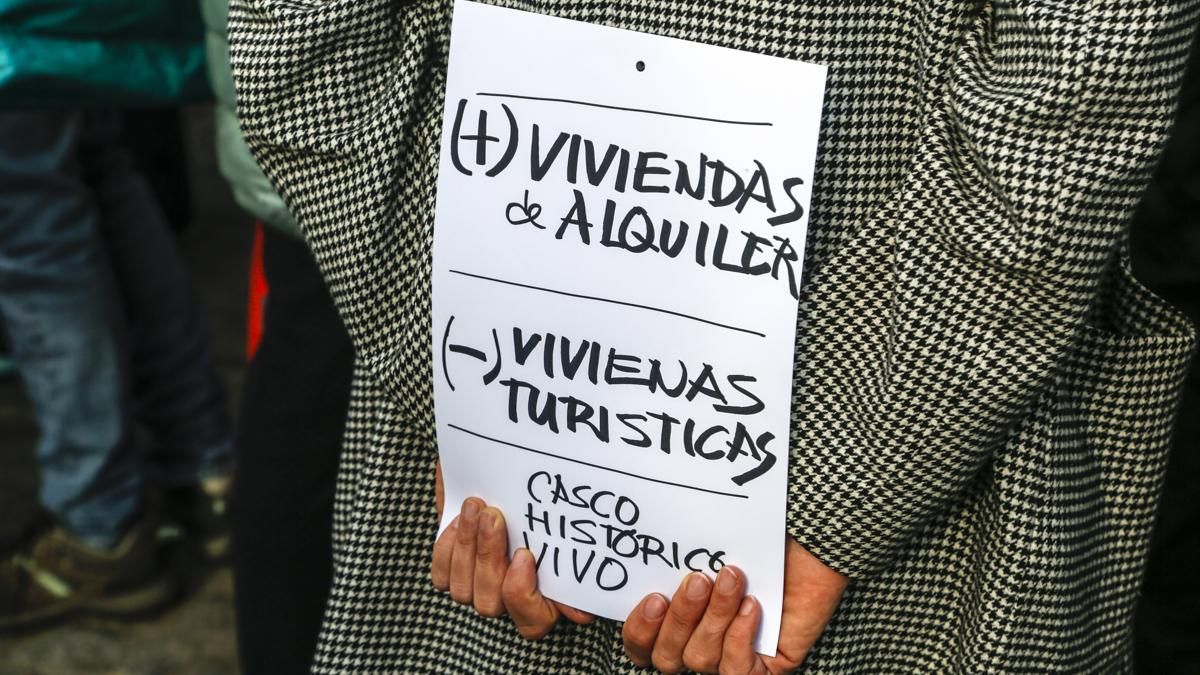 (+) VIVIENDAS
de ALQUILER
(-) VIVIENAS
TURISTICAS
CASCO
HISTÓRICO
VIVO